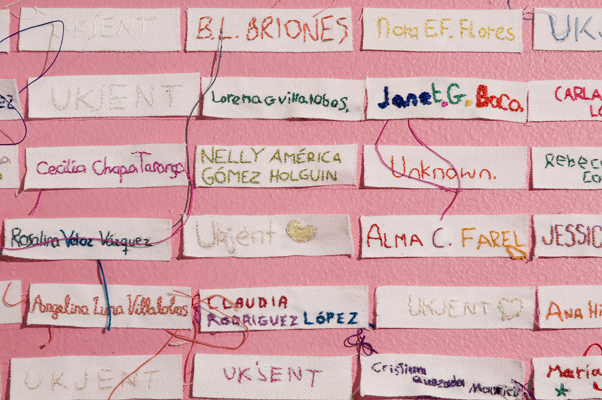 UKJENT
B.L. BRIONES
Nora E.F. Flores
UKJ
UKJENT
Lorena G villalobos,
Janet. G. Baca
CARLA
Cecilia Chapa Taranga
NELLY AMÉRICA
GÓMEZ HOLGUIN
Unknown.
Rebec
Rosalina Veloz Vázquez
Ukjent
ALMA C. FAREL
JESSIC
Angelina Luna Villalobos
CLAUDIA
RODRIGUEZ LÓPEZ
UKJENT
Ana Hi
UKJENT
UKJENT
Cristina
Quezada Mauricio
María